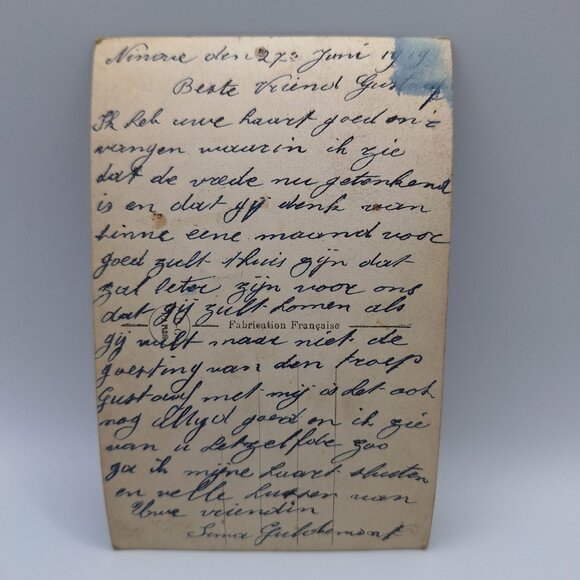 Ninove den 27e Juni 1919
Beste Vriend Gustaf
Ik heb uwe kaart goed ont
vangen waarin ik zie
dat de vrede nu getenkend
is en dat gij denk van
binne eene maand voor
goed zult thuis zijn dat
zal beter zijn voor ons
dat gij zult komen als
Fabrication Française
gij wilt maar niet de
goesting van den troep
Gustaaf met mij is het ook
nog altyd goed en ik zie
van u hetzelfde zoo
ga ik mijne kaart sluiten
en velle kussen van
Uwe vriendin